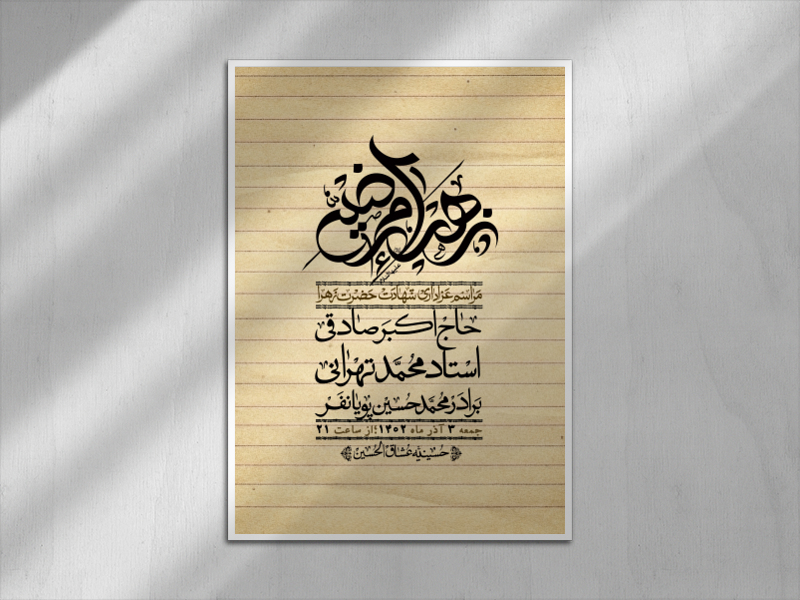 زهرا مرضیه
مراسم عزاداری شهادت حضرت زهرا
حاج اکبر صادقی
استاد محمد تهرانی
برادر محمد حسین پویانفر
جمعه ۳ آذر ماه ۱۴۰۲ از ساعت ۲۱
حسینیه عشاق الحسین